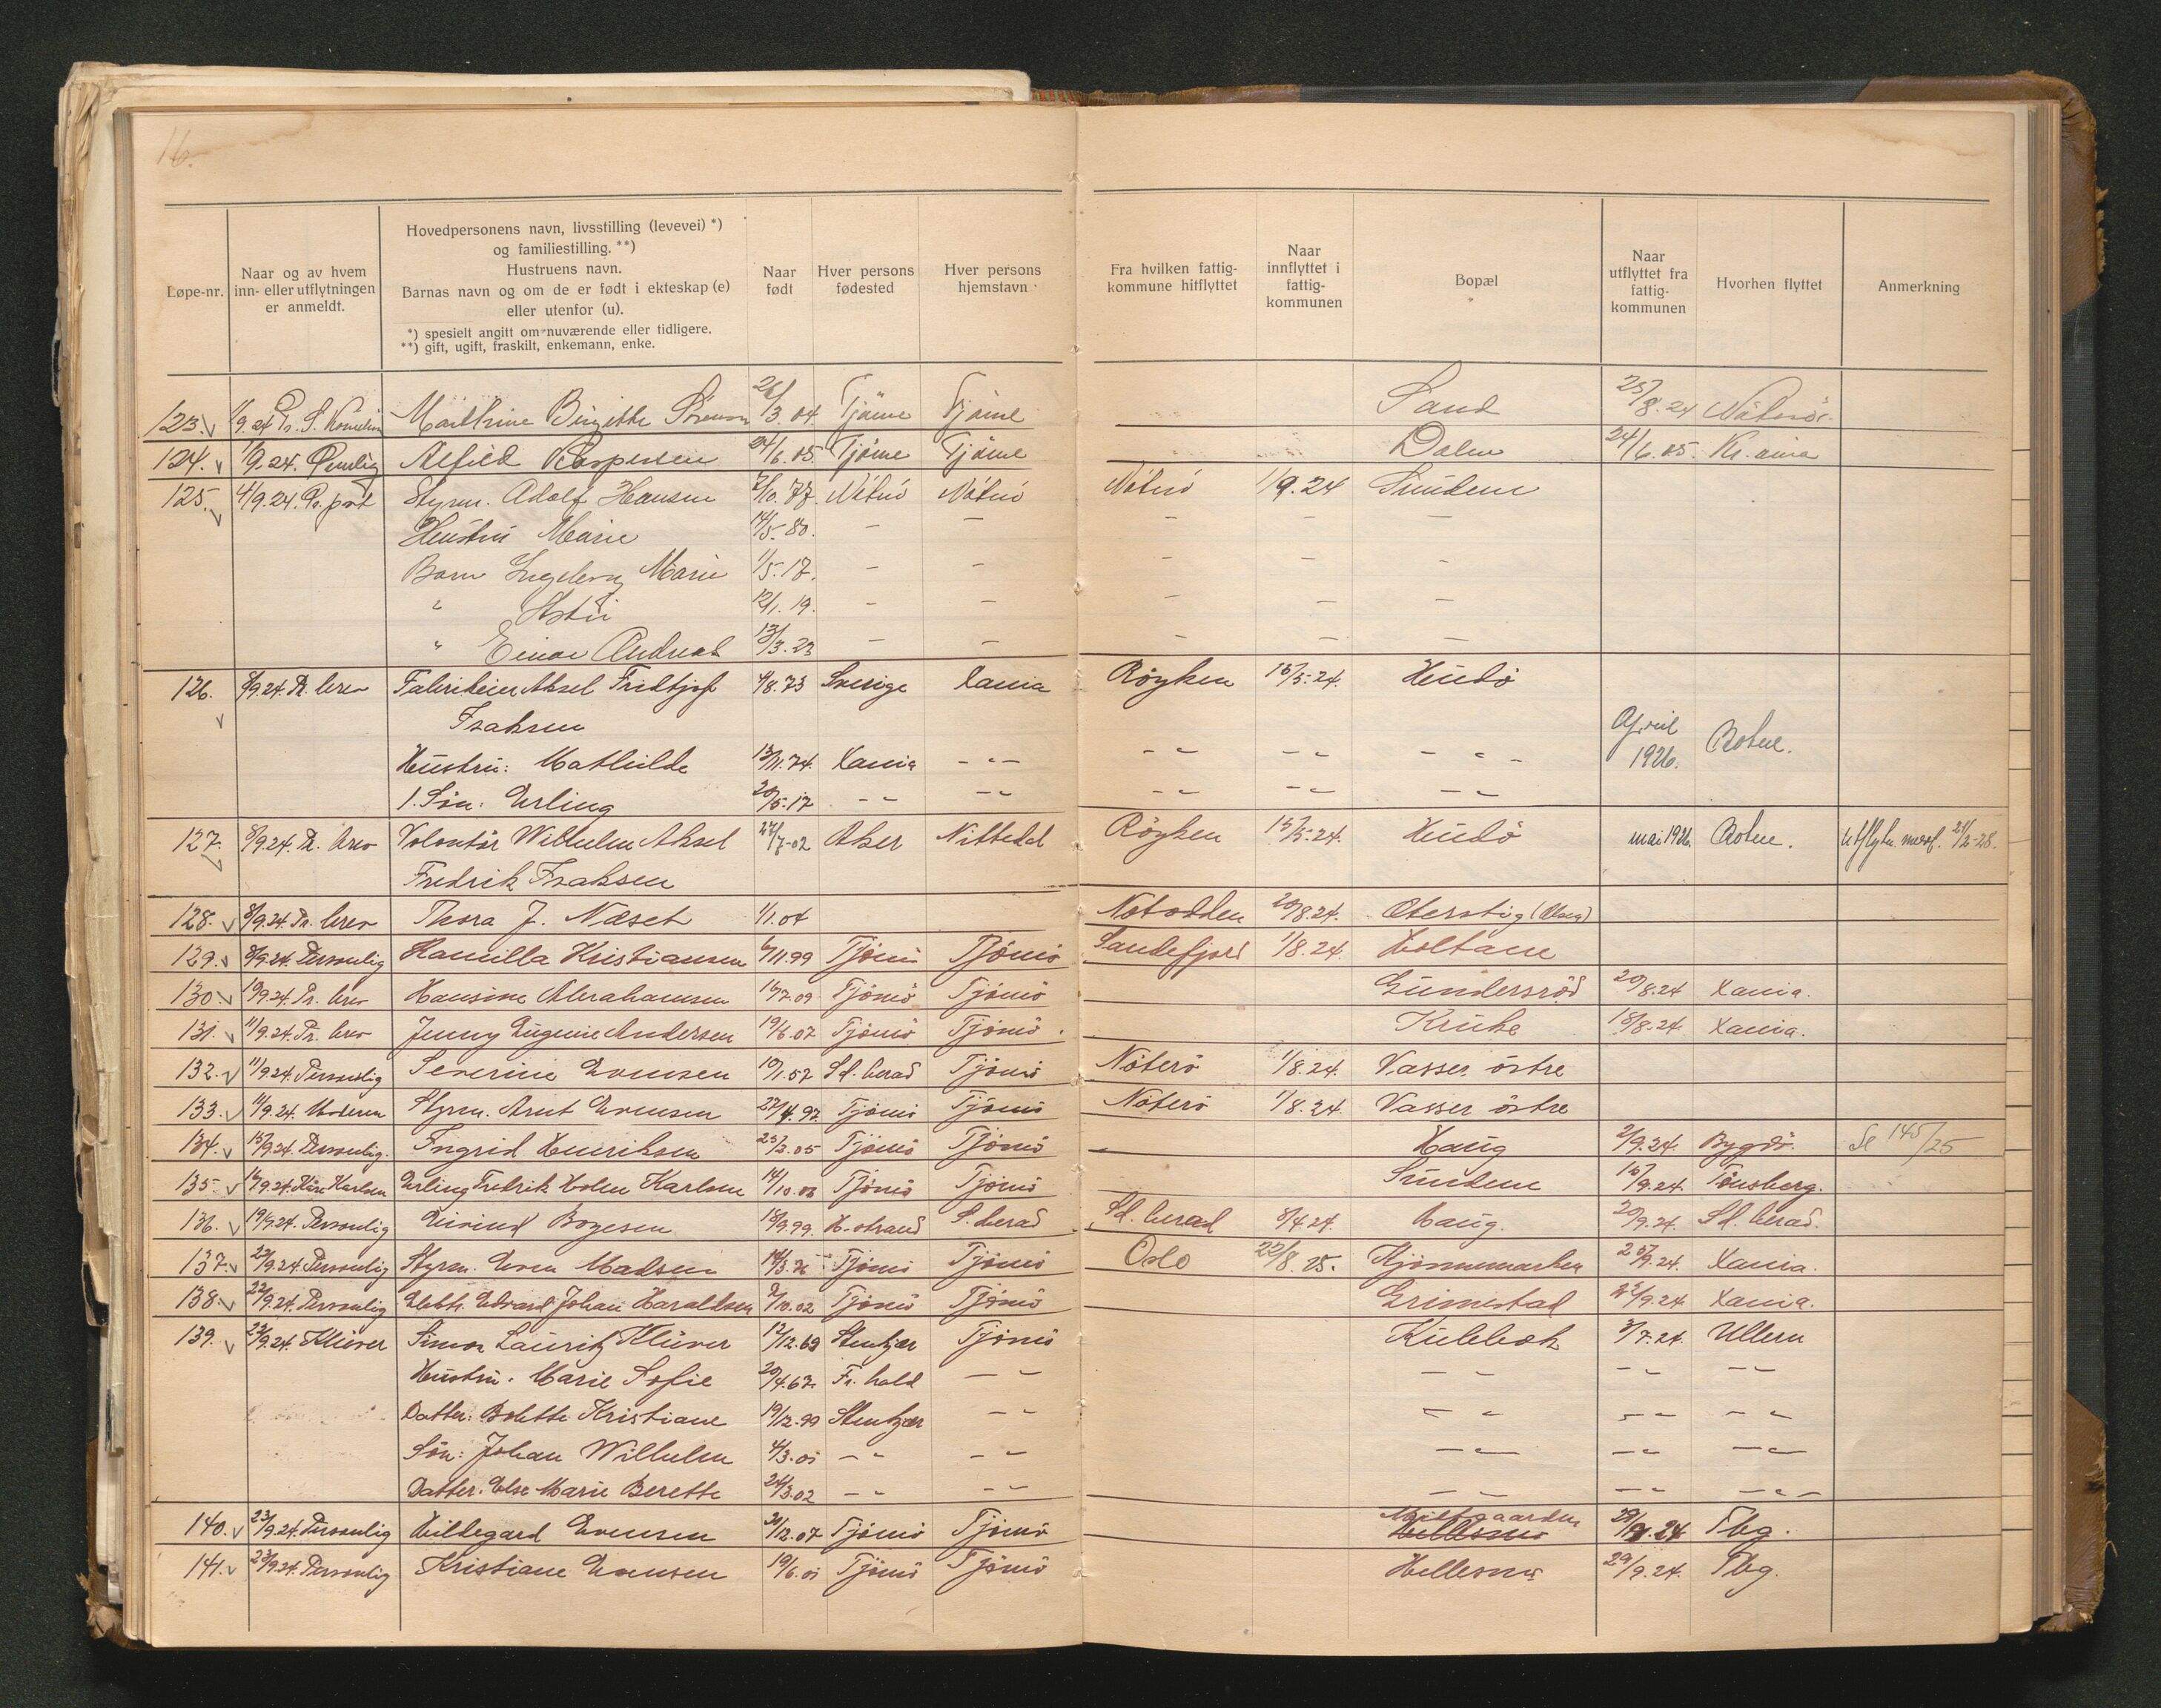 16.
Løpe-nr.
Naar og av hvem
inn- eller utflytningen
er anmeldt.
Hovedpersonens navn, livsstilling (levevei) *)
og familiestilling. **)
Hustruens navn.
Barnas navn og om de er født i ekteskap (e)
eller utenfor (u).
*) spesielt angitt om nuværende eller tidligere.
**) gift, ugift, fraskilt, enkemann, enke.
Naar
født
Hver persons
fødested
Hver persons
hjemstavn
Fra hvilken fattig-
kommune hitflyttet
Naar
innflyttet i
fattig-
kommunen
Bopæl
Naar
utflyttet fra
fattig-
kommunen
Hvorhen flyttet
Anmerkning
123. 1/9.24 Pr. S. Birgitte 26/3.04 Tjöme Tjöme Sand 25/8.24 Nöterö.
124. 1/9.24. Alfild Kaspersen 24/6.05 Tjöme Tjöme Dalen 24/6.05. Kr.ania
125. 4/9.24. Pr. post Styrm. Adolf Hansen 7/10.77. Nöterö Nöterö Nöterö 1/9.24 Sunden
Hustru Marie 14/5.80. – – – – –
Barn Ingeborg Marie 1/5.17. – – – – –
" 12/1.19. – – – – –
" Einar Andreas 13/3.23 – – – – –
126. 8/9.24. Pr. brev Fabrikeier Aksel Fridtjof 4/8.73 Sverige Xania Röyken 15/5.24. Hudö
Isaksen
April
1926. Botne.
Hustru: Mathilde 13/11.74. Xania
1. Sön: Erling 20/5.17
127. 8/9.24. Pr. brev Volontör Wilhelm Aksel 27/7-02 Aker Nittedal Röyken 15/5.24. Hudö mai 1926. Botne. 21/2-28.
Fredrik Isaksen
128. 8/9.24. Pr. brev Thora J. Næset 1/1.04 Notodden 20/8.24.
129. 8/9.24. Personlig Hamilla Kristiansen 6/11.99 Tjömö Tjömö Sandefjord 1/8.24. Holtane
130. 10/9.24. Pr. brev Hansine Abrahamsen 16/7.09 Tjömö Tjömö Gundersröd 20/8.24 Xania.
131. 11/9.24. Pr. brev Jenny Eugenie Andersen 19/6.07 Tjömö Tjömö. Kruke 18/8.24. Xania.
132. 11/9.24. Personlig Severine Evensen 10/1.57 Sd. herad Tjömö Nöterö 1/8.24. Vasser östre
133. 11/9.24. Moderen Styrm. Arnt Evensen 27/4.97. Tjömö Tjömö Nöterö 1/8.24. Vasser östre
134. 15/9.24. Personlig. Ingrid Henriksen 25/2.05 Tjömö Tjömö Haug 2/9.24. Bygdö. Se 145/25
135. 16/9.24. Kåre Karlsen Erling Fredrik Holm Karlsen 14/10.08 Tjömö Tjömö Sunden 15/9.24. Tönsberg.
136. 19/9.24. Personlig Eivind Bogesen 18/9.99 H.strand S. herad Sd. herad 8/4.24. Haug. 20/9.24. Sd. herad.
137. 22/9.24. Personlig Styrm. Even Madsen 14/3.76 Tjömö Tjömö Oslo 22/8.25. Hjönnemarken 25/9.24. Xania.
138. 22/9.24. Personlig Elektr. Edvard Johan Haraldsen 7/10.02 Tjömö Tjömö Grimestad 22/9.24 Xania.
139. 22/9.24. Klüver Simon Lauritz Klüver 17/12.69 Stenkjær Tjömö Kulebok 3/7.24. Ullern
Hustru. Marie Sofie 20/4.67. Fr. hald
Datter. Bolette Kristiane 19/12.99 Stenkjær
Sön: Johan Wilhelm 4/3.01
Datter. Else Marie Berette 24/3.02
140. 23/9.24. Personlig Hildegard Evensen 30/12.07 Tjömö Tjömö Midtgaarden 29/9.24 Tbg.
141. 23/9.24. Personlig Kristiane Evensen 19/6.01 Tjömö Tjömö Hellesmo 29/9.24. Tbg.